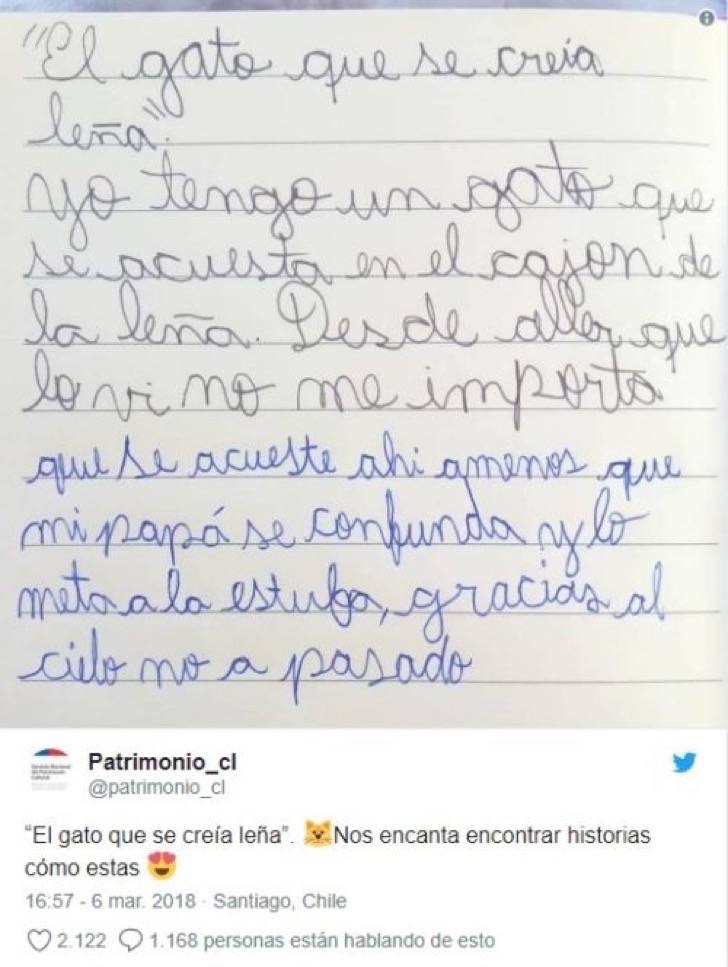 "El gato que se creia
leña".
yo tengo un gato que
se acuesta en el cajon de
la leña. Desde aller que
lo vi no me importa
que se acueste ahi amenos que
mi papá se confunda y lo
meta a la estufa, gracias al
cielo no a pasado
Patrimonio_cl
@patrimonio_cl
"El gato que se creía leña". 🐱Nos encanta encontrar historias
cómo estas 😍
16:57 - 6 mar. 2018 · Santiago, Chile
2.122 1.168 personas están hablando de esto